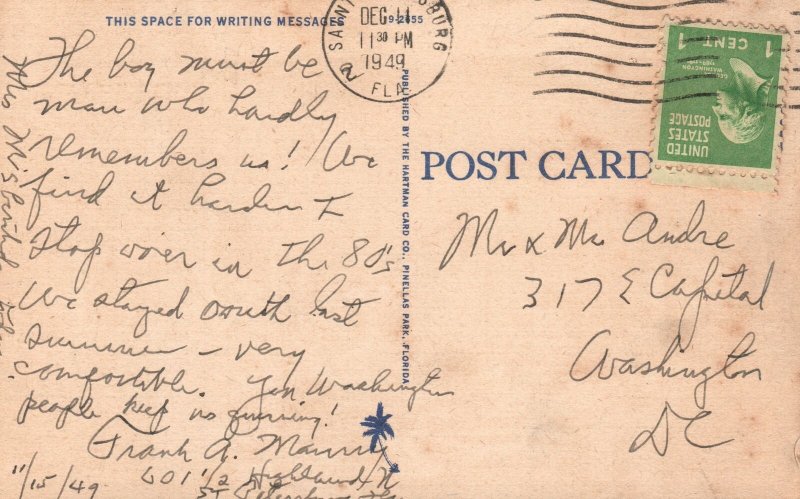 THIS SPACE FOR WRITING MESSAGES
The boy must be
man who hardly
remembers us! We
find it harder t
stop over in the 80's
We stayed south last
summer - very
comfortible. You Washington
people keep us running!
Frank A.
601 1/2 Highland N
St Petersburg Fla
11/15/49
Mrs
9-2655
PUBLISHED BY THE HARTMAN CARD CO., PINELLAS PARK, FLORIDA
SAINT PETERSBURG
DEC 11
11 30 PM
1949
2 FLA
POST CARD
1 CENT 1
GEORGE WASHINGTON
UNITED
STATES
POSTAGE
Mr & Mrs Andre
317 E Capital
Washington
DC